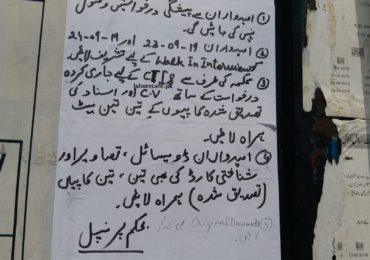 ① امیدواران سے پیشگی درخواستیں وصول
نہیں کی جائیں گی۔
② امیدواران 19-09-23 اور 19-09-21
Walk in Interviews کے لیے تشریف لائیں
③ محکمہ کی طرف سے CTIs کے لیے جاری کردہ
lahorecafe.pk
درخواست کے ساتھ C.V اور اسناد کی
تصدیق شدہ کاپیوں کے تین تین سیٹ
ہمراہ لائیں۔
④ امیدواران ڈومیسائل، تصاویر اور
شناختی کارڈ کی بھی تین، تین کاپیاں
(تصدیق شدہ) ہمراہ لائیں۔
Original Documents
بحکم پرنسپل